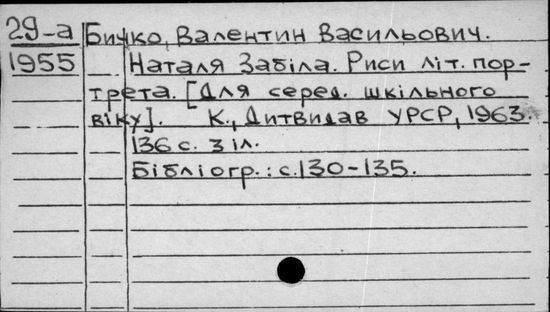 29-а Бичко, Валентин Васильович.
1955 Наталя Забіла. Риси літ. пор-
трета. [Для серед. шкільного
віку]. К., Дитвидав УРСР, 1963.
136 с. з іл.
Бібліогр.: с. 130-135.